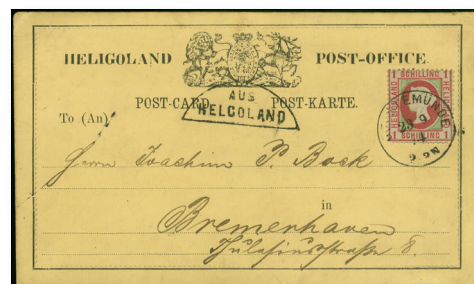 HELIGOLAND POST-OFFICE.
POST-CARD. POST-KARTE.
AUS
HELGOLAND
1 SCHILLING 1
HELIGOLAND
1 SCHILLING 1
23 9
To (An)
Herrn Joachim P. Bock
in
Bremerhaven
8.